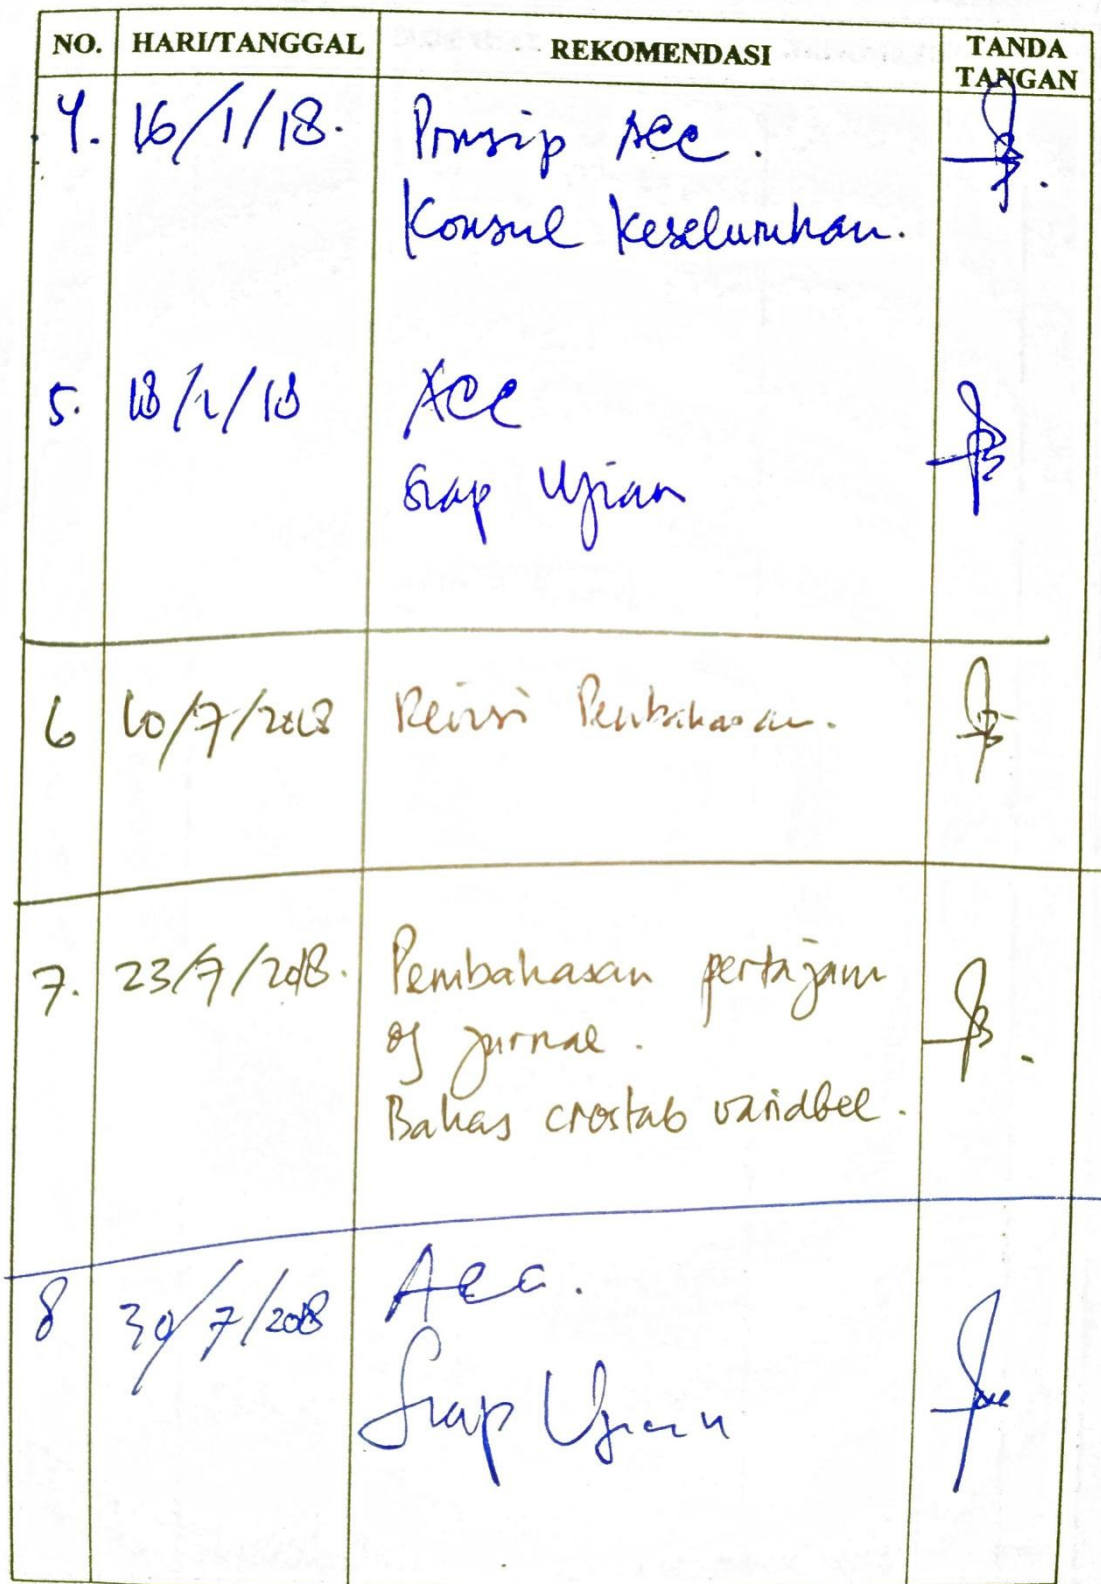 NO. HARI/TANGGAL REKOMENDASI TANDA TANGAN
4. 16/1/18. Prinsip Acc.
Konsul Keseluruhan.
5. 18/1/18 ACC
Siap Ujian
6 10/7/2018 Revisi Pembahasan.
7. 23/7/2018. Pembahasan pertajam
dg jurnal.
Bahas crostab variabel.
8 30/7/2018 Acc.
Siap Ujian